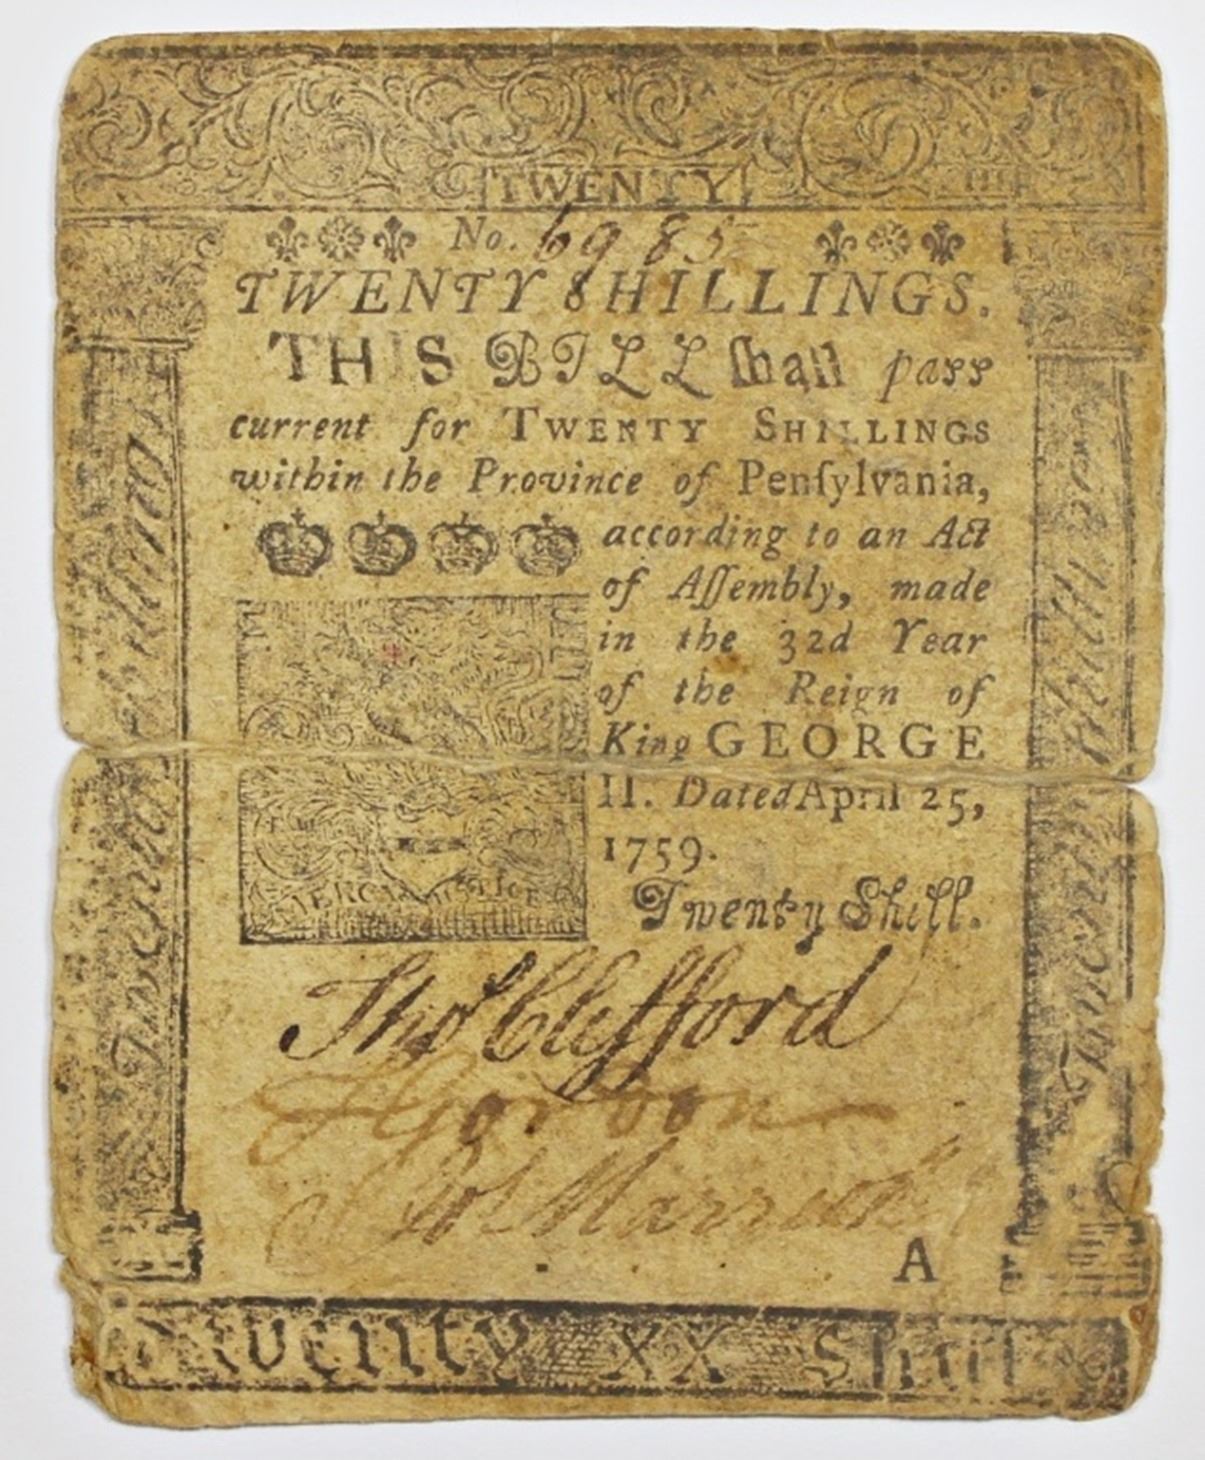 TWENTY
No. 6985
TWENTY SHILLINGS.
THIS BILL shall pass
current for TWENTY SHILLINGS
within the Province of Penſylvania,
according to an Act
of Aſſembly, made
in the 32d Year
of the Reign of
King GEORGE
II. Dated April 25,
1759.
Twenty Shill.
MERCY JUSTICE
Twenty Shillings
Twenty Shillings
Thos Clifford
Gordon
Jos Marriott
A
Twenty XX Shill